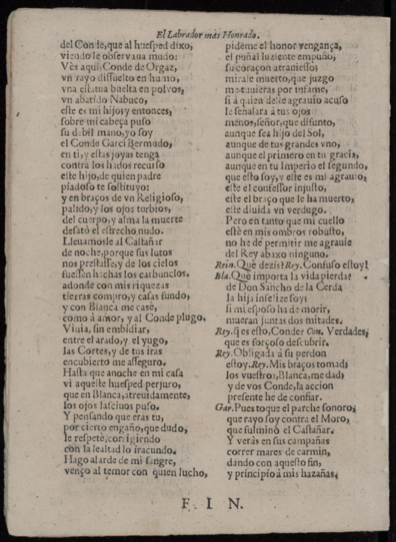 El Labrador más Honrado.
del Conde, que al huesped dixo,
viendole observava mudo:
Ves aqui Conde de Orgaz,
vn rayo dissuelto en humo,
vna estatua buelta en polvos,
vn abatido Nabuco,
este es mi hijo; y entonces,
sobre mi cabeça puso
su debil mano, yo soy
el Conde Garci Bermudo,
en ti, y estas joyas tenga
contra los hados recurso
este hijo, de quien padre
piadoso te sostituyo:
y en braços de vn Religioso,
palido, y los ojos turbios,
del cuerpo, y alma la muerte
desató el estrecho nudo.
Llevamosle al Castañar
de noche, porque sus lutos
nos prestasse, y de los cielos
fuessen hachas los carbunclos.
adonde con mis riquezas
tierras compro, y casas fundo,
y con Blanca me casè,
como à amor, y al Conde plugo.
Viuia, sin embidiar,
entre el arado, y el yugo,
las Cortes, y de tus iras
encubierto me asseguro.
Hasta que anoche en mi casa
vi aqueste huesped perjuro,
que en Blanca, atreuidamente,
los ojos lasciuos puso.
Y pensando que eras tu,
por cierto engaño, que dudo,
le respetè, corrigiendo
con la lealtad lo iracundo.
Hago alarde de mi sangre,
venço al temor con quien lucho,
pideme el honor vengança,
el puñal luziente empuño,
su coraçon atrauiesso:
mirale muerto, que juzgo
me tuuieras por infame,
si à quien deste agrauio acuso
le señalara à tus ojos
menos, señor, que difunto,
aunque sea hijo del Sol,
aunque de tus grandes vno,
aunque el primero en tu gracia,
aunque en tu Imperio el segundo,
que esto soy, y este es mi agrauio,
este el confessor injusto,
este el braço que le ha muerto,
este diuida vn verdugo.
Pero en tanto que mi cuello
estè en mis ombros robusto,
no he de permitir me agrauie
del Rey abaxo ninguno.
Rein. Què dezis? Rey. Confuso estoy!
Bla. Què importa la vida pierda?
de Don Sancho de la Cerda
la hija infelize soy;
si mi esposo ha de morir,
mueran juntas dos mitades.
Rey. q̃ es esto, Conde? Con. Verdades,
que es forçoso descubrir.
Rey. Obligada à su perdon
estoy. Rey. Mis braços tomad;
los vuestros, Blanca, me dad;
y de vos Conde, la accion
presente he de confiar.
Gar. Pues toque el parche sonoro,
que rayo soy contra el Moro,
que fulminò el Castañar.
Y verás en sus campañas
correr mares de carmin,
dando con aquesto fin,
y principio à mis hazañas.
F I N.